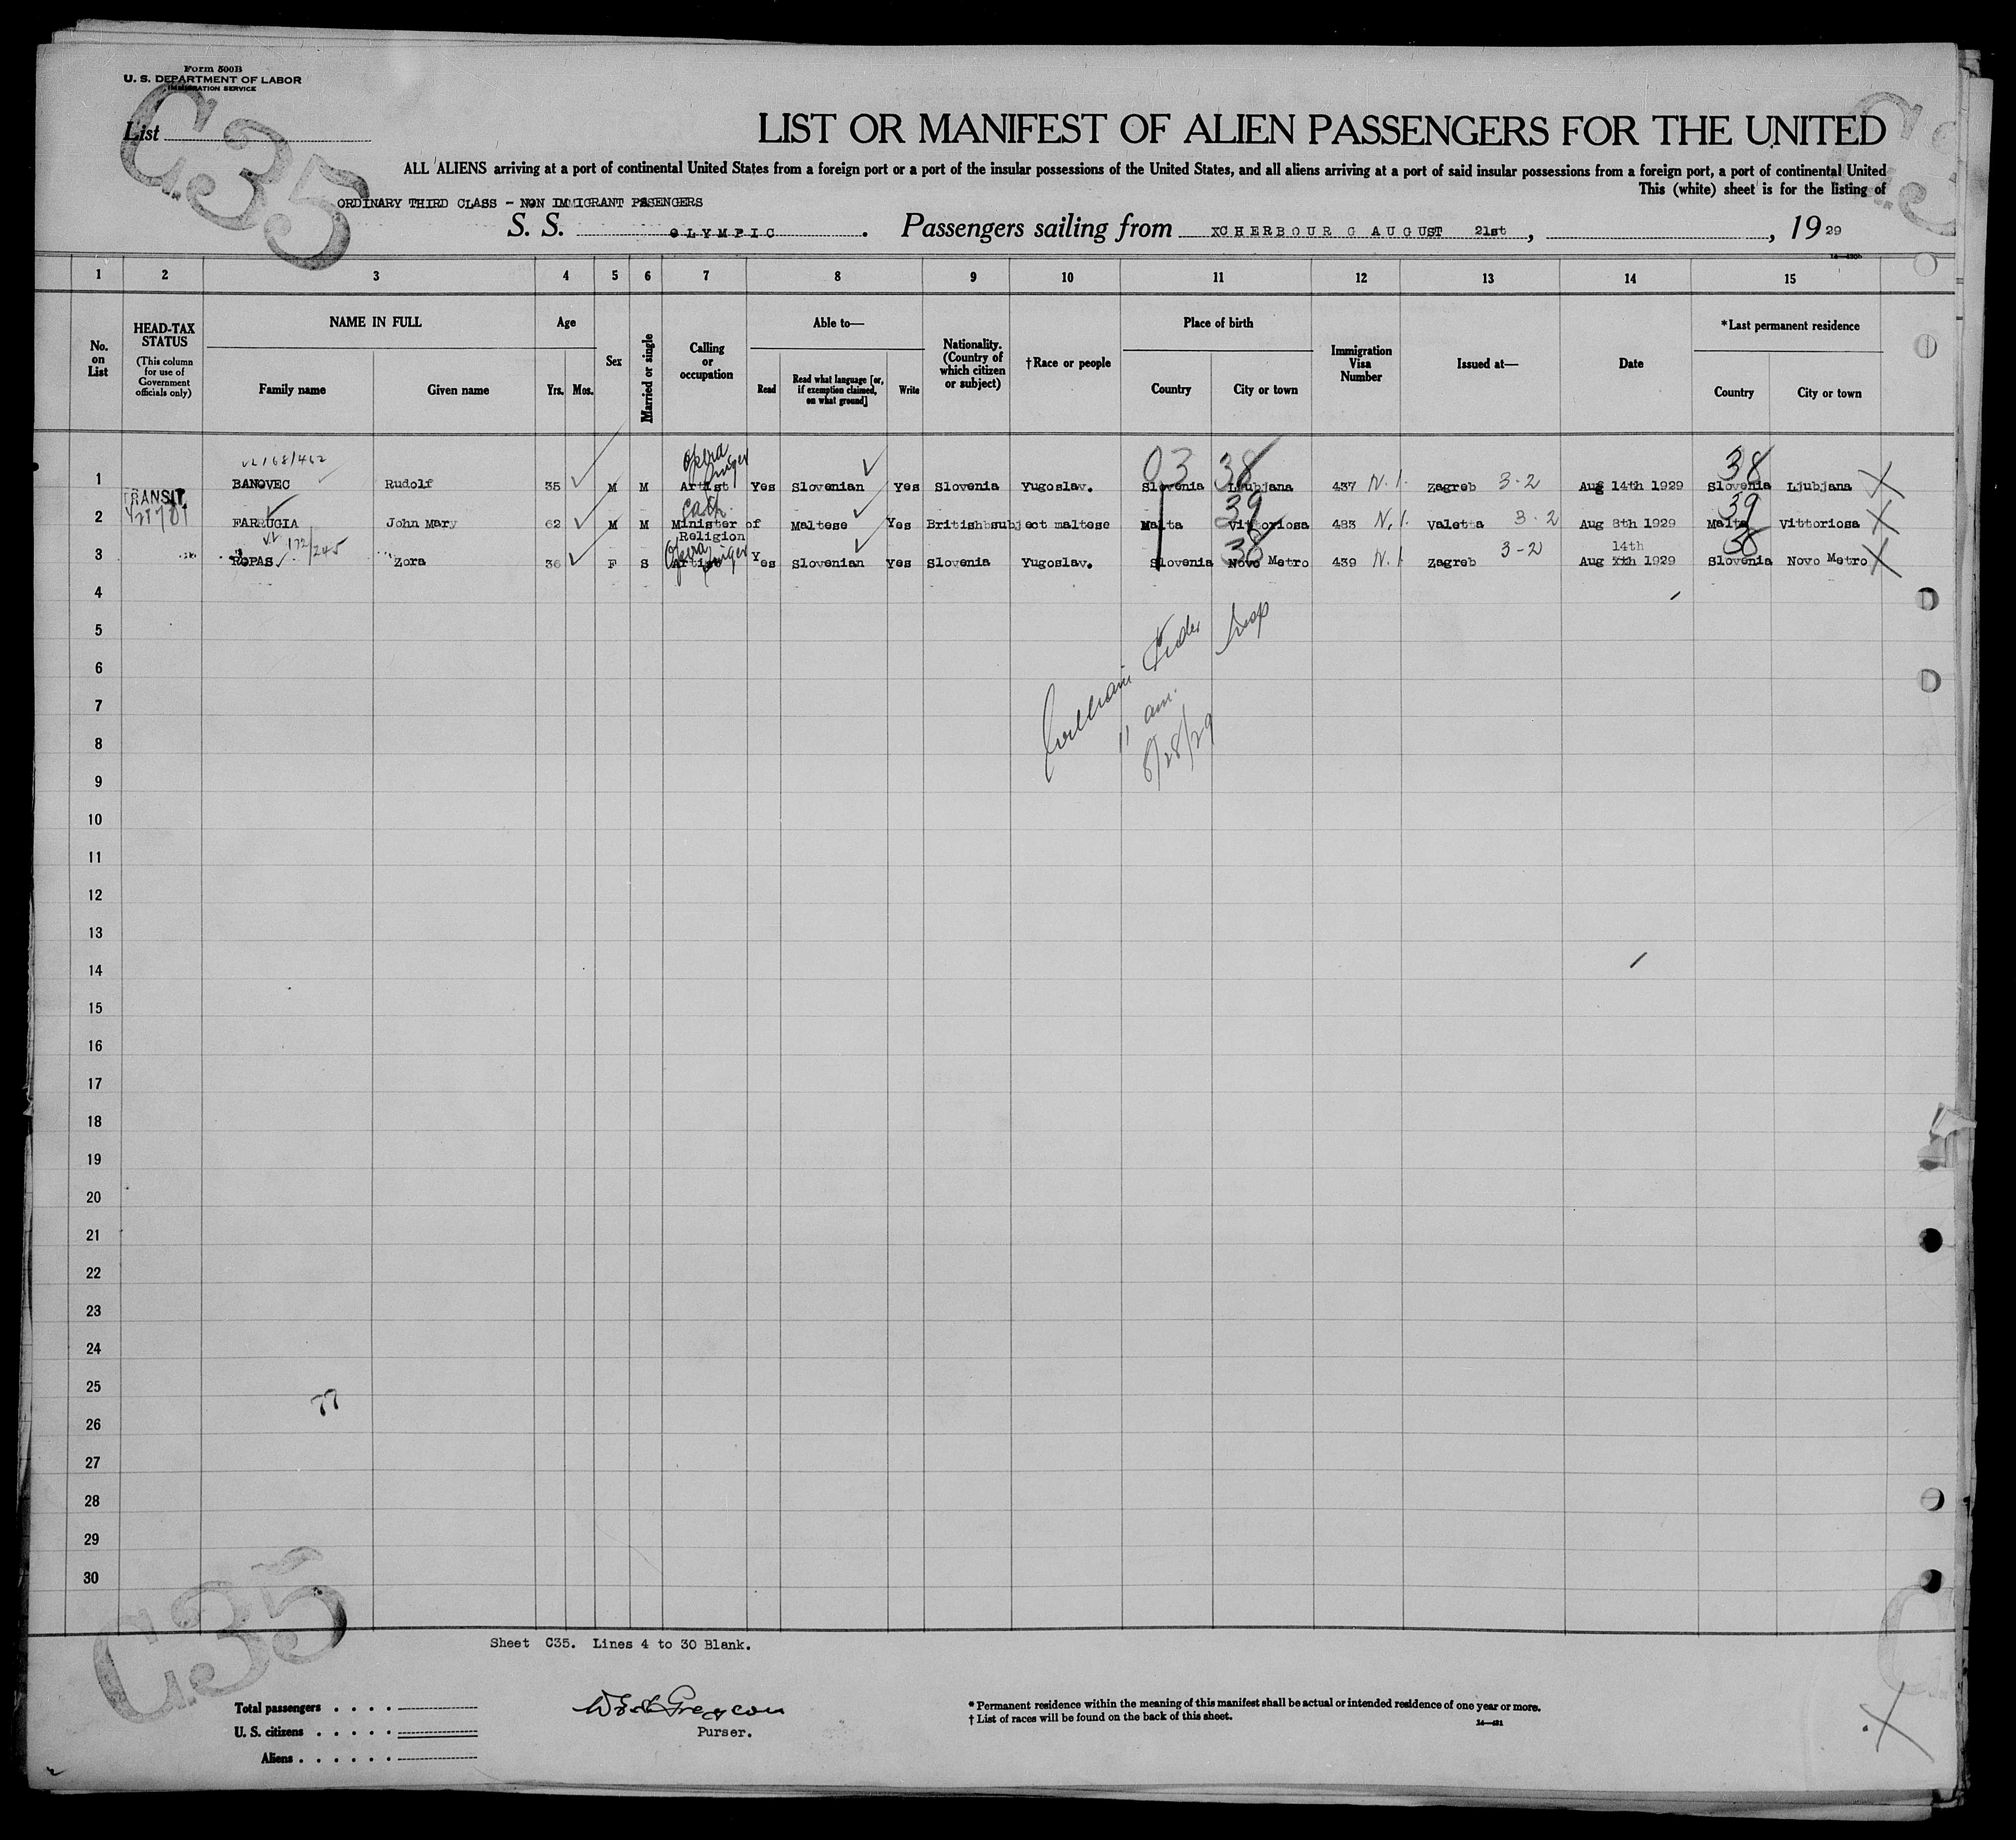 Form 500B
U. S. DEPARTMENT OF LABOR
IMMIGRATION SERVICE
C35
List
LIST OR MANIFEST OF ALIEN PASSENGERS FOR THE UNITED
ALL ALIENS arriving at a port of continental United States from a foreign port or a port of the insular possessions of the United States, and all aliens arriving at a port of said insular possessions from a foreign port, a port of continental United
This (white) sheet is for the listing of
ORDINARY THIRD CLASS - NON IMMIGRANT PASENGERS
S. S. OLYMPIC. Passengers sailing from XCHERBOURG AUGUST 21st, , 1929
1 2 3 4 5 6 7 8 9 10 11 12 13 14 15
No. on List
HEAD-TAX STATUS
(This column for use of Government officials only)
NAME IN FULL
Family name Given name
Age
Yrs. Mos.
Sex
Married or single
Calling or occupation
Able to—
Read
Read what language [or, if exemption claimed, on what ground]
Write
Nationality. (Country of which citizen or subject)
†Race or people
Place of birth
Country City or town
Immigration Visa Number
Issued at—
Date
*Last permanent residence
Country City or town
168/462 Opera Singer 03 38 38
1 BANOVEC Rudolf 35 M M Artist Yes Slovenian Yes Slovenia Yugoslav. Slovenia Ljubjana 437 N.I. Zagreb 3-2 Aug 14th 1929 Slovenia Ljubjana X
TRANSIT Cath. 39 39
2 FARRUGIA John Mary 62 M M Minister of Religion Maltese Yes Britishbsubject maltese Malta Vittoriosa 483 N.I. Valetta 3-2 Aug 8th 1929 Malta Vittoriosa X
172/245 Opera Singer 38 14th 38
3 ROPAS Zora 36 F S Artist Yes Slovenian Yes Slovenia Yugoslav. Slovenia Novo Metro 439 N.I. Zagreb 3-2 Aug 1929 Slovenia Novo Metro X
4
5
6
7
11 am.
8
8/28/29
9
10
11
12
13
14
15
16
17
18
19
20
21
22
23
24
25
77
26
27
28
29
30
C35
Sheet C35. Lines 4 to 30 Blank.
Total passengers
U. S. citizens
Aliens
Purser.
* Permanent residence within the meaning of this manifest shall be actual or intended residence of one year or more.
† List of races will be found on the back of this sheet.
14—421
X